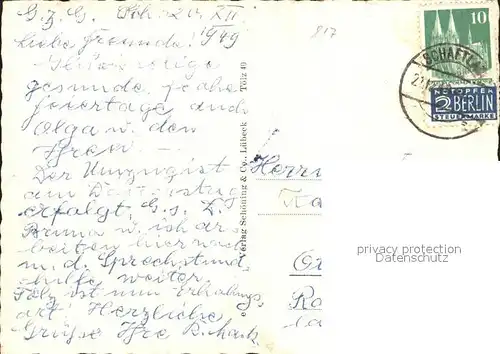 G. z. G. Sch. 21. XII.
1949
317
Liebe Freunde!
gesunde, frohe
Feiertage auch
Olga u. den
Ihren
Der Umzug ist
am Donnerstag
erfolgt. G. s. D.
Bruna u. ich ar-
beiten hier noch
m. d. Sprechstund
hilfe weiter.
Tölz ist nun Erholungs
ort! Herzliche
Grüße Ihre
Verlag Schöning & Co., Lübeck Tölz 40
10
SCHAFTL
21.12
NOTOPFER
2 BERLIN
STEUERMARKE
Herrn
Ka
privacy protection
Datenschutz